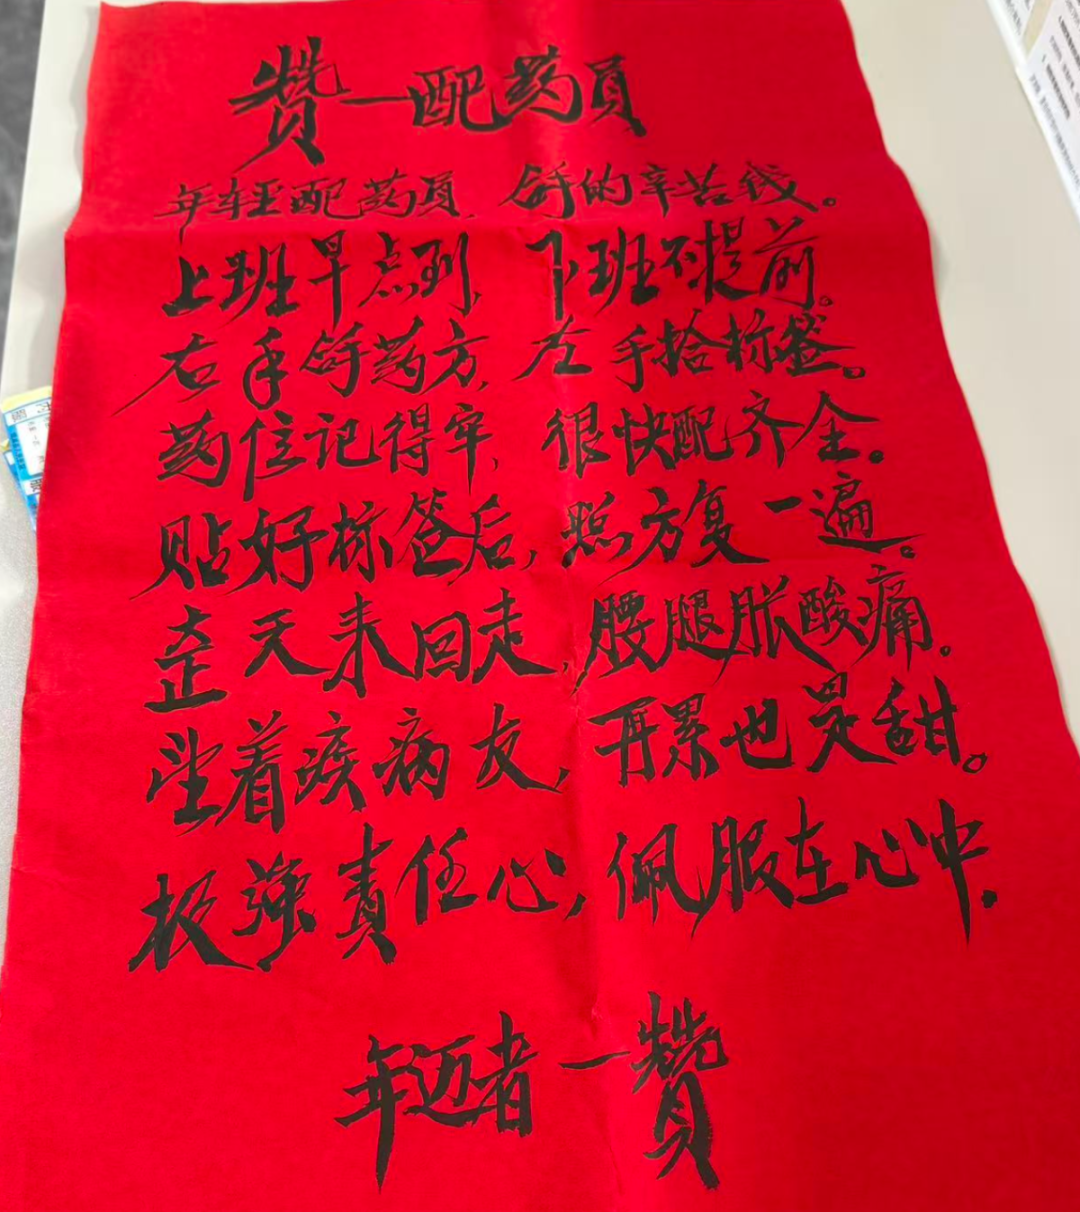 赞一配药员
年轻配药员，拿的辛苦钱。
上班早点到，下班不提前。
右手拿药方，左手拾标签。
药位记得牢，很快配齐全。
贴好标签后，照方复一遍。
歪天来回走，腰腿胀酸痛。
望着疾病友，再累也是甜。
极强责任心，佩服在心中．
年迈者一赞